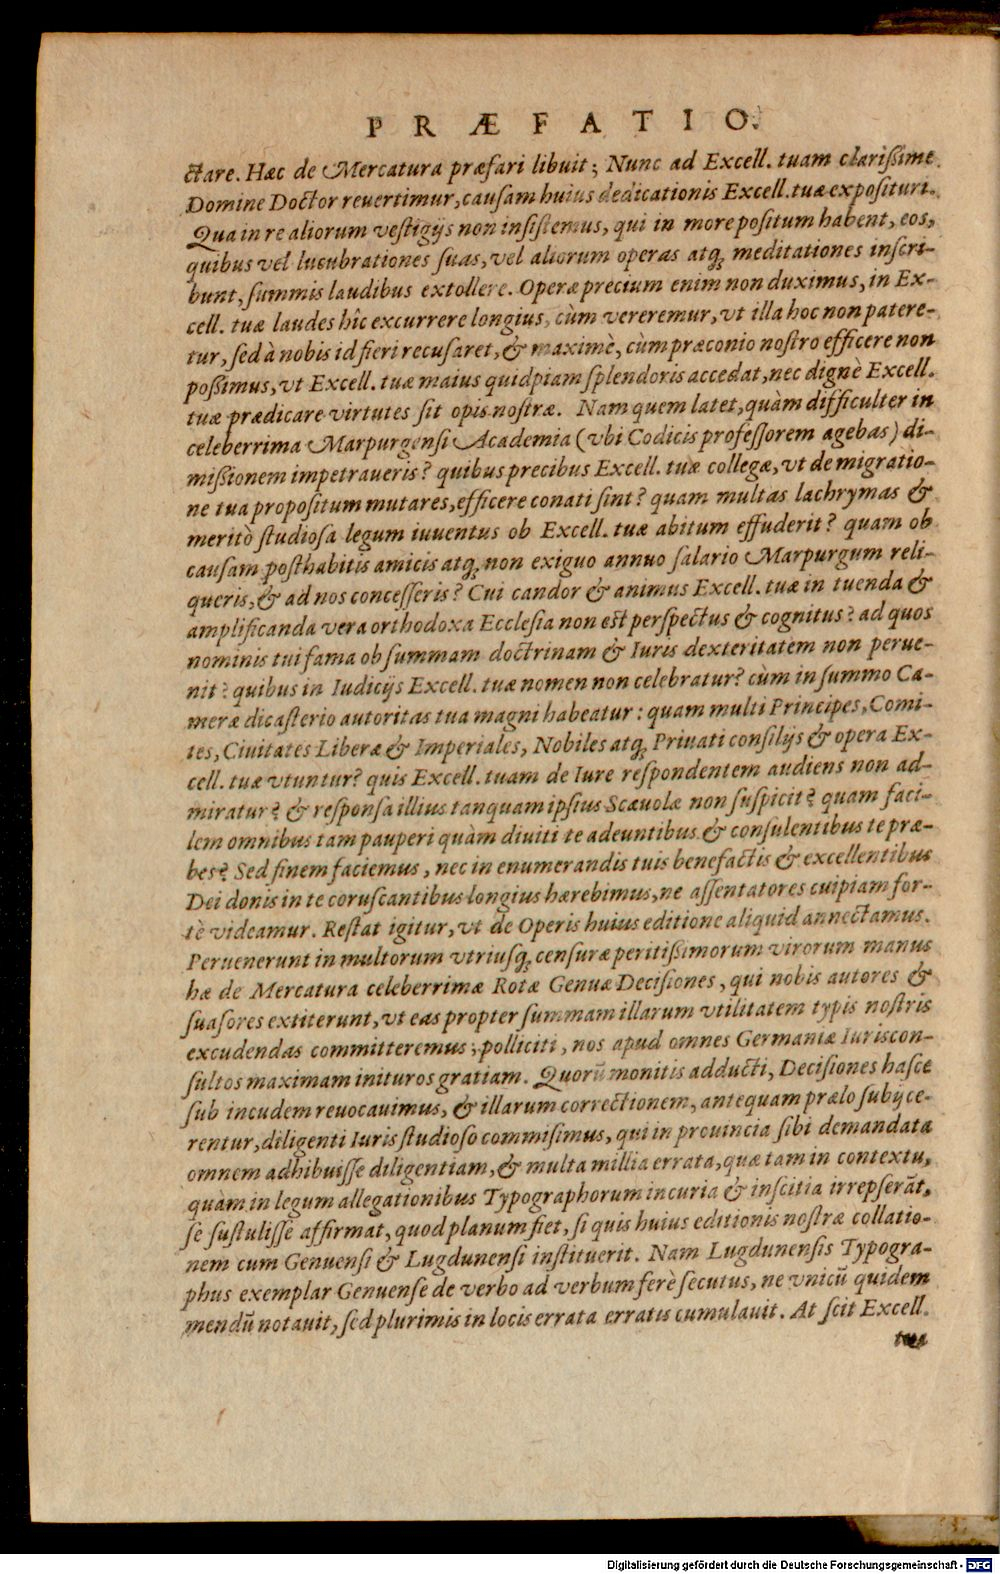 PRÆFATIO.
ctare. Hæc de Mercatura præfari libuit; Nunc ad Excell. tuam clarißime
Domine Doctor reuertimur, causam huius dedicationis Excell. tuæ exposituri.
Qua in re aliorum vestigijs non insistemus, qui in more positum habent, eos,
quibus vel lucubrationes suas, vel aliorum operas atq; meditationes inscri-
bunt, summis laudibus extollere. Operæ precium enim non duximus, in Ex-
cell. tuæ laudes hîc excurrere longius, cùm vereremur, vt illa hoc non patere-
tur, sed à nobis id fieri recusaret, & maximè, cum præconio nostro efficere non
possimus, vt Excell. tuæ maius quidpiam splendoris accedat, nec dignè Excell.
tuæ prædicare virtutes sit opis nostræ. Nam quem latet, quàm difficulter in
celeberrima Marpurgensi Academia (vbi Codicis professorem agebas) di-
mißionem impetraueris? quibus precibus Excell. tuæ collegæ, vt de migratio-
ne tua propositum mutares, efficere conati sint? quam multas lachrymas &
meritò studiosa legum iuuentus ob Excell. tuæ abitum effuderit? quam ob
causam posthabitis amicis atq; non exiguo annuo salario Marpurgum reli-
queris, & ad nos concesseris? Cui candor & animus Excell. tuæ in tuenda &
amplificanda vera orthodoxa Ecclesia non est perspectus & cognitus? ad quos
nominis tui fama ob summam doctrinam & Iuris dexteritatem non perue-
nit? quibus in Iudicijs Excell. tuæ nomen non celebratur? cùm in summo Ca-
meræ dicasterio autoritas tua magni habeatur: quam multi Principes, Comi-
tes, Ciuitates Liberæ & Imperiales, Nobiles atq; Priuati consilijs & opera Ex-
cell. tuæ vtuntur? quis Excell. tuam de Iure respondentem audiens non ad-
miratur? & responsa illius tanquam ipsius Scæuolæ non suspicit? quam faci-
lem omnibus tam pauperi quàm diuiti te adeuntibus & consulentibus te præ-
bes? Sed finem faciemus, nec in enumerandis tuis benefactis & excellentibus
Dei donis in te coruscantibus longius hærebimus, ne assentatores cuipiam for-
tè videamur. Restat igitur, vt de Operis huius editione aliquid annectamus.
Peruenerunt in multorum vtriusq; censuræ peritißimorum virorum manus
hæ de Mercatura celeberrimæ Rotæ Genuæ Decisiones, qui nobis autores &
suasores extiterunt, vt eas propter summam illarum vtilitatem typis nostris
excudendas committeremus; polliciti, nos apud omnes Germaniæ Iuriscon-
sultos maximam inituros gratiam. Quorũ monitis adducti, Decisiones hasce
sub incudem reuocauimus, & illarum correctionem, antequam prælo subijce-
rentur, diligenti Iuris studioso commisimus, qui in prouincia sibi demandata
omnem adhibuisse diligentiam, & multa millia errata, quæ tam in contextu,
quàm in legum allegationibus Typographorum incuria & inscitia irrepserãt,
se sustulisse affirmat, quod planum fiet, si quis huius editionis nostræ collatio-
nem cum Genuensi & Lugdunensi instituerit. Nam Lugdunensis Typogra-
phus exemplar Genuense de verbo ad verbum ferè secutus, ne vnicũ quidem
mendũ notauit, sed plurimis in locis errata erratis cumulauit. At scit Excell.
tua
Digitalisierung gefördert durch die Deutsche Forschungsgemeinschaft - DFG